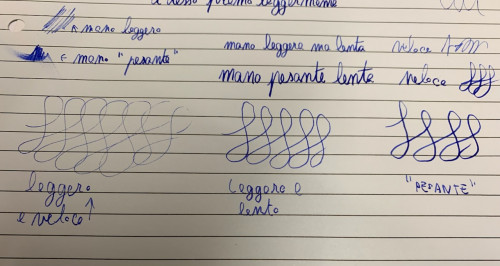 adesso premo leggermente
← mano leggera
← mano "pesante"
mano leggera ma lenta veloce
mano pesante lenta veloce
leggera
e veloce ↑
leggera e
lenta
"PESANTE"